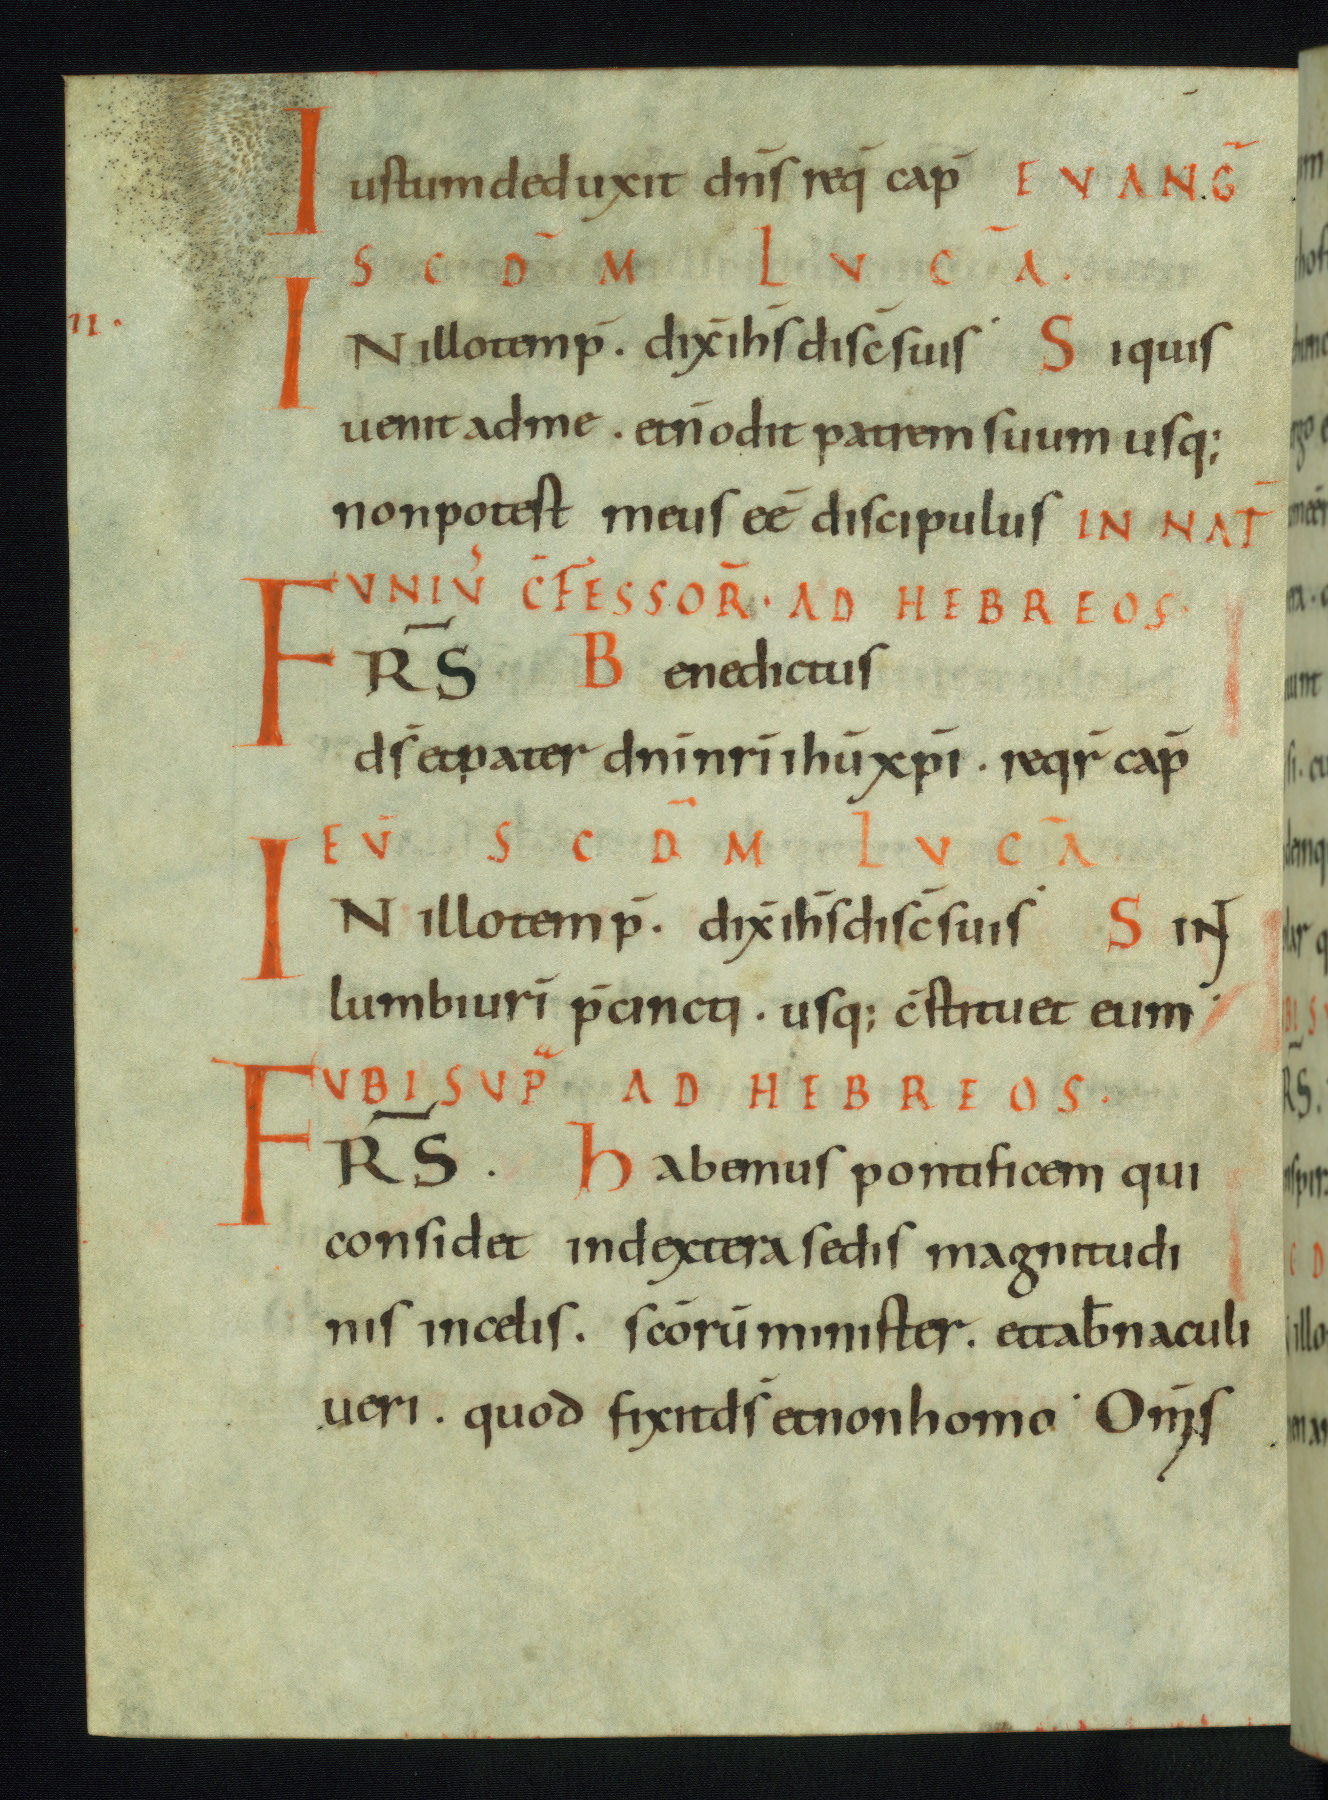 Iustum deduxit dn̄s req̄ cap̄ EVANḠ
SCD̄M LVCĀ.
II.
IN illo temp̄. dix̄ ih̄s disc̄ suis S iquis
uenit ad me . et n̄ odit patrem suum usq;
non potest meus eē discipulus IN NAT̄
VNIV᾽ C̄FESSOR̄. AD HEBREOS.
FR̄S Benedictus
ds̄ et pater dn̄i nr̄i ihū xp̄i . reqr̄ cap̄
EV̄ SCD̄M LVCĀ.
IN illo temp̄. dix̄ ih̄s disc̄ suis SiN
lumbi ur̄i p̄cincti . usq; c̄stituet eum
VBI SVPᵃ AD HEBREOS.
FR̄S . habemus pontificem qui
considet in dextera sedis magnitudi
nis in celis . scōrū minister . et tab̄naculi
ueri . quod fixit ds̄ et non homo Om̄is